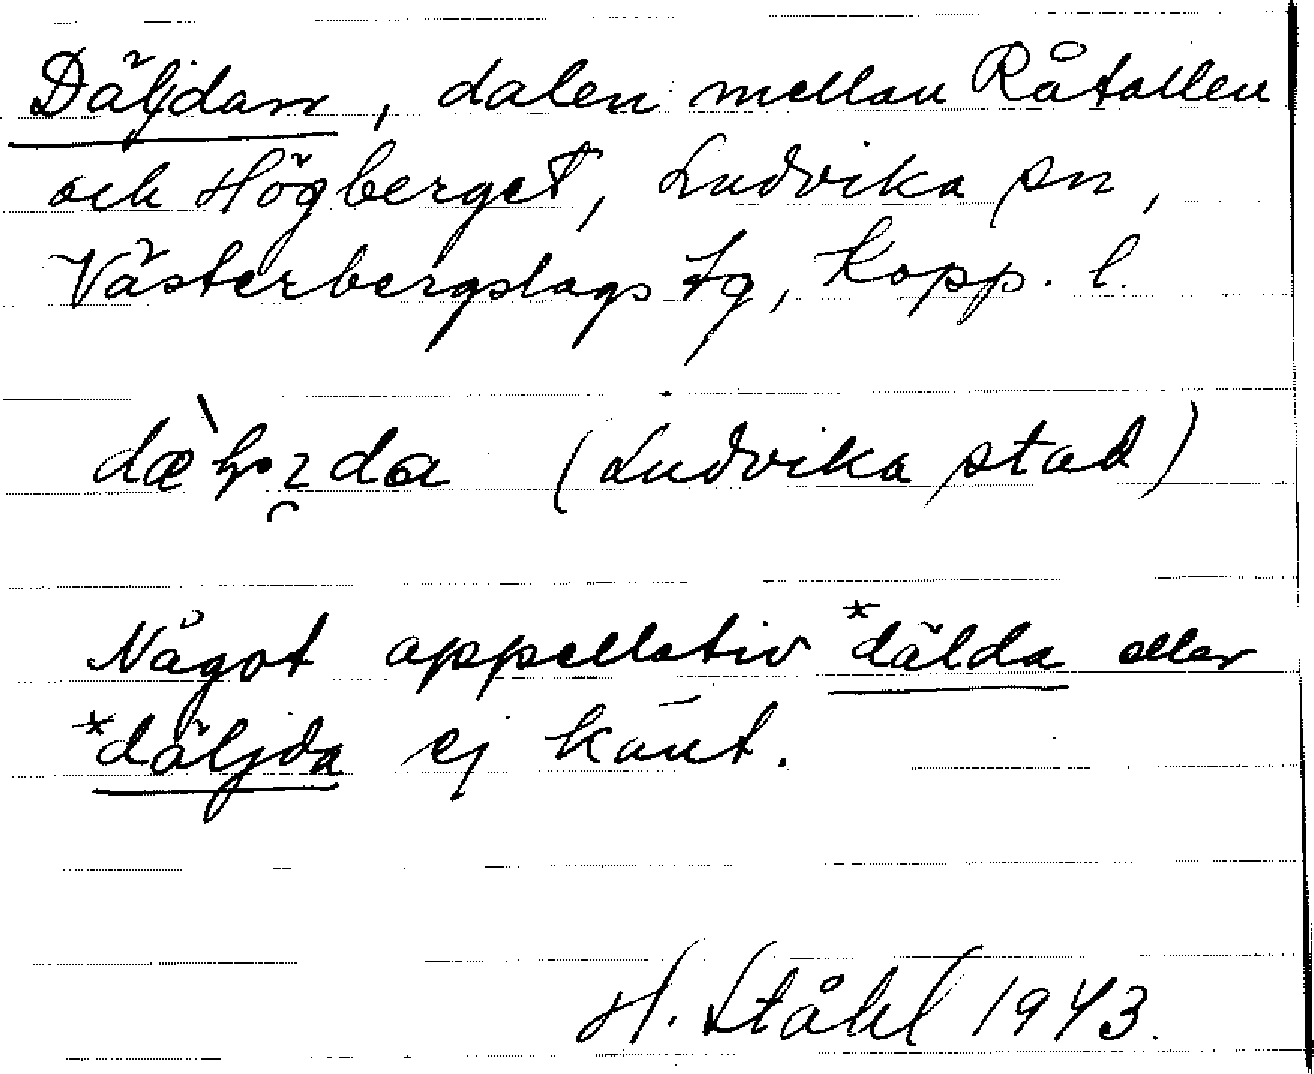 Däljdan, dalen mellan Råtallen
och Högberget, Ludvika sn,
Västerbergslags tg, Kopp. l.
(Ludvika stad)
Något appellativ *dälda eller
*däljda ej känt.
H. Ståhl 1943.